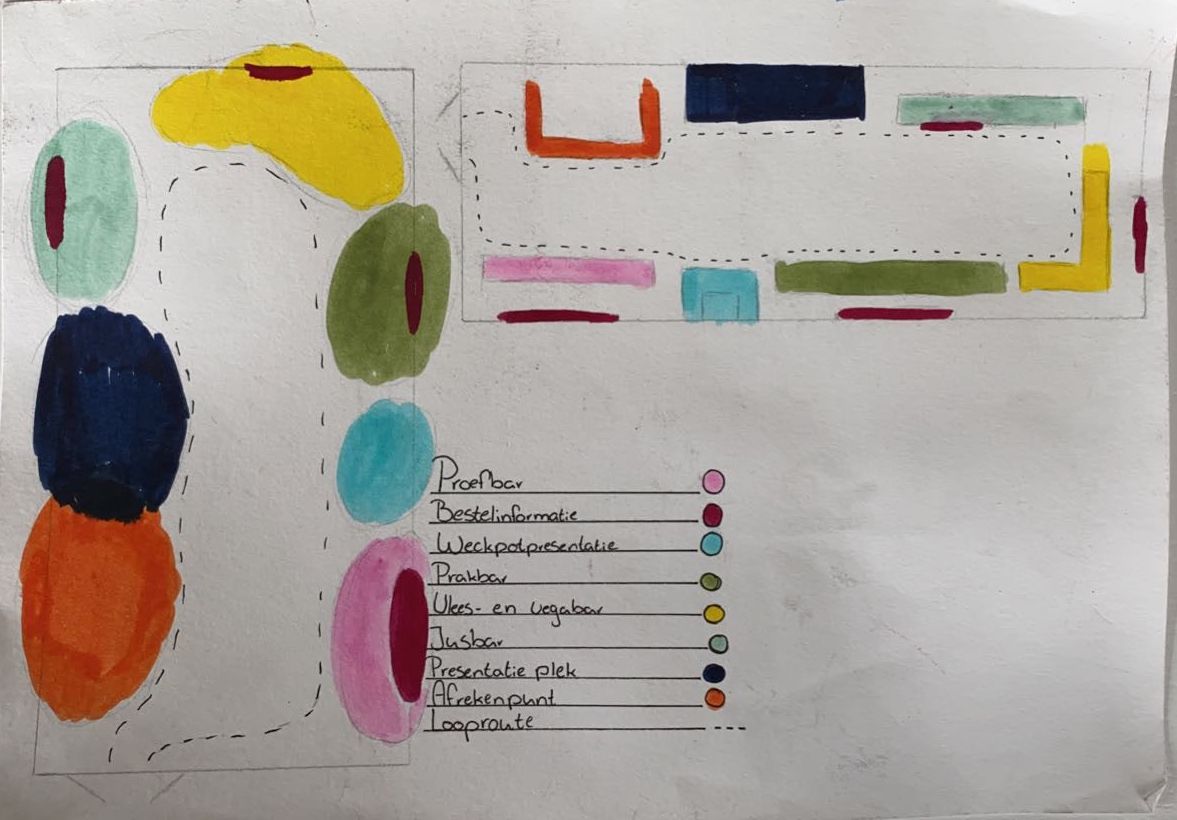 Proefbar
Bestelinformatie
Weckpotpresentatie
Prakbar
Vlees- en vegabar
Jusbar
Presentatie plek
Afrekenpunt
Looproute